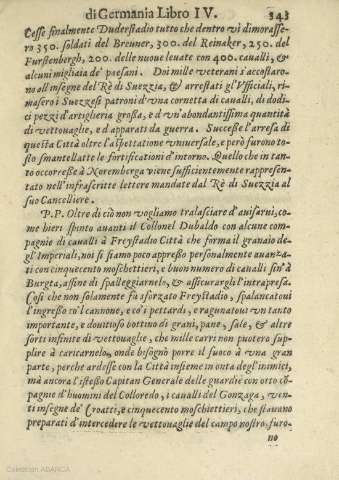 di Germania Libro IV. 343
Cesse finalmente Duderstadio tutto che dentro vi dimorasse-
ro 350. soldati del Breuner, 300. del Reinaker, 250. del
Furstenbergh, 200. delle nuoue leuate con 400. caualli, &
alcuni migliaia de' paesani. Doi mille veterani s'accostaro-
no all'insegne del Rè di Suezzia, & arrestati gl'Vfficiali, ri-
masero i Suezzesi patroni d'vna cornetta di caualli, di dodi-
ci pezzi d'artiglieria grossa, e d'vn'abondantissima quantità
di vettouaglie, ed'apparati da guerra. Successe l'arresa di
questa Città oltre l'aspettatione vniuersale, e però furono to-
sto smantellatte le fortificationi d'intorno. Quello che in tan-
to occorresse à Noremberga viene sufficientemente rappresen-
tato nell'infrascritte lettere mandate dal Rè di Suezzia al
suo Cancelliere.
P.P. Oltre di ciò non vogliamo tralasciare d'auisarui, co-
me hieri spinto auanti il Collonel Dubaldo con alcune com-
pagnie di caualli à Freystadio Città che forma il granaio de-
gl'Imperiali, noi si siamo poco appresso personalmente auanza-
ti con cinquecento moschettieri, e buon numero di caualli sin'à
Burgta, affine di spalleggiarnelo, & assicurargli l'intrapresa.
Cosi che non solamente fù sforzato Freystadio, spalancatoui
l'ingresso co'l cannone, e co' i pettardi, e ragunatoui vn tanto
importante, e douitioso bottino di grani, pane, sale, & altre
sorti infinite di vettouaglie, che mille carri non puotero sup-
plire à caricarnelo, onde bisognò porre il fuoco à vna gran
parte, perche ardesse con la Città insieme in onta degl'inimici,
mà ancora l'istesso Capitan Generale delle guardie con otto cō-
pagnie d'huomini del Colloredo, i caualli del Gonzaga, ven-
ti insegne de' Croatti, e cinquecento moschiettieri, che stauano
preparati d'intercedere le vettouaglie del campo nostro, furo-
no
Colección ABARCA